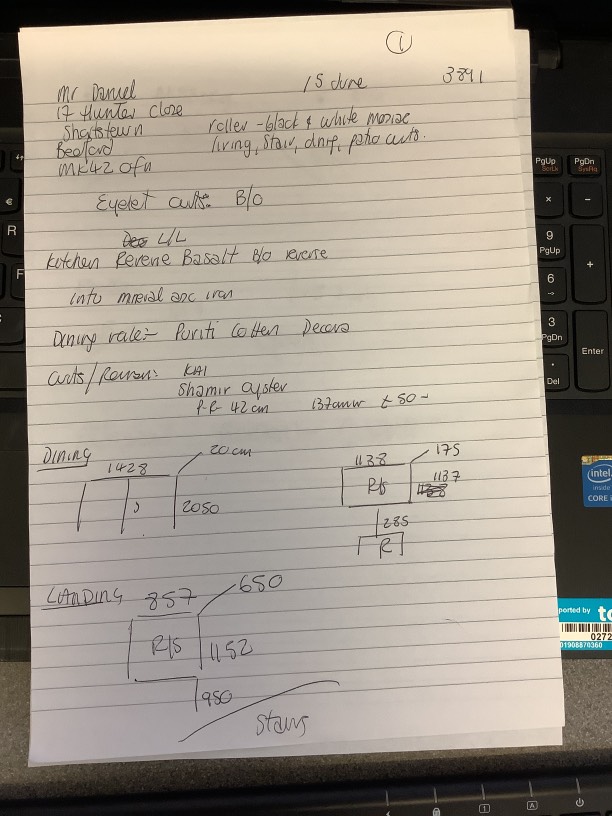 1
15 June 3891
Mr Daniel
17 Hunter Close
Shortstown
Bedford
MK42 0fn
roller - black & white mosaic
living, stair, dnrg, patio curts.
Eyelet curts. B/O
L/L
Kitchen Revene Basalt B/O reverse
Into
Dining :- Puriti Cotten Decora
Curts/Roman: KAI
Shamir oyster
P.R 42 cm 137cmw £ 50 -
DINING
1428
20cm
2050
1138
175
R/s
1137
285
R
LANDING
857
650
R/s
1152
950
Stairs
PgUp
ScrLk
PgDn
SysRq
9
PgUp
6
3
PgDn
.
Del
+
Enter
€
R
F
intel
inside
CORE i
ported by
0272
01908870360
1
A